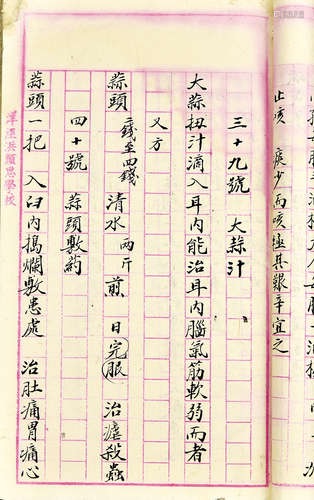 止咳 痰少而咳極其艱辛宜之
三十九號 大蒜汁
大蒜扭汁滴入耳內能治耳內腦氣筋軟弱而者
又方
蒜頭 二錢至四錢 清水 兩斤 煎 日完服 治瘧殺蟲
四十號 蒜頭敷药
蒜頭一把 入臼內搗爛敷患處 治肚痛胃痛心